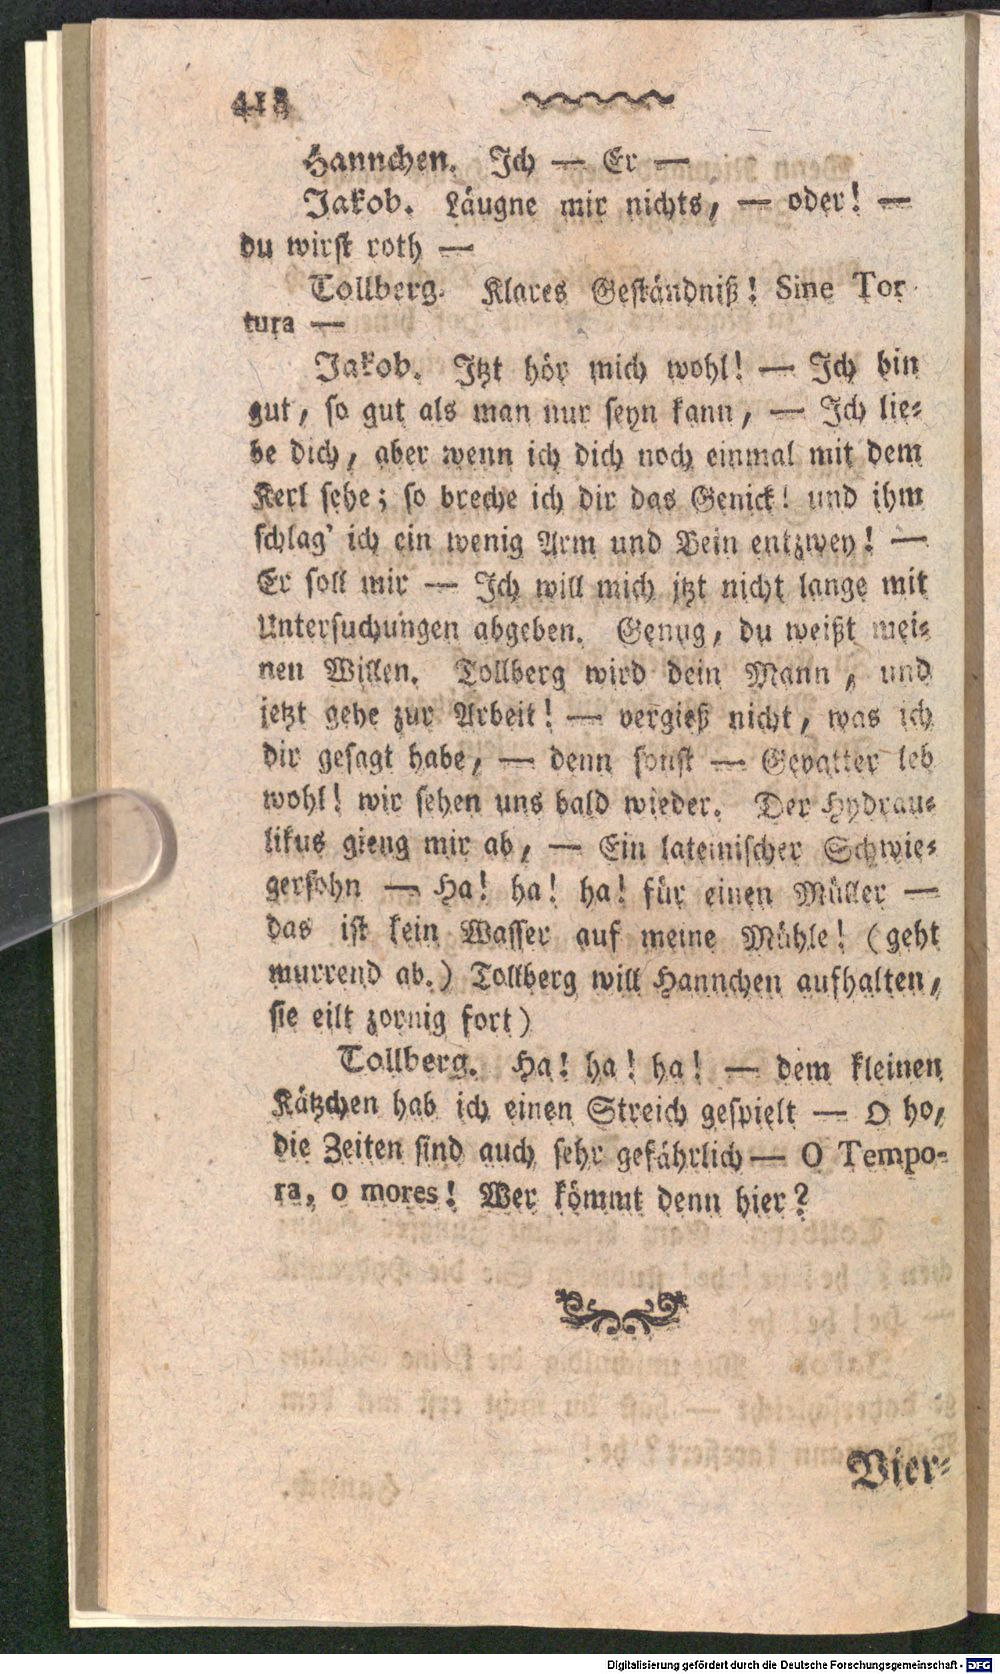 418
Hannchen. Ich — Er —
Jakob. Läugne mir nichts, — oder! —
du wirst roth —
Tollberg. Klares Geständniß! Sine Tor-
tura —
Jakob. Itzt hör mich wohl! — Ich bin
gut, so gut als man nur seyn kann, — Ich lie-
be dich, aber wenn ich dich noch einmal mit dem
Kerl sehe; so breche ich dir das Genick! und ihm
schlag' ich ein wenig Arm und Bein entzwey! —
Er soll mir — Ich will mich jtzt nicht lange mit
Untersuchungen abgeben. Genug, du weißt mei-
nen Willen. Tollberg wird dein Mann, und
jetzt gehe zur Arbeit! — vergieß nicht, was ich
dir gesagt habe, — denn sonst — Gevatter leb
wohl! wir sehen uns bald wieder. Der Hydrau-
likus gieng mir ab, — Ein lateinischer Schwie-
gersohn — Ha! ha! ha! für einen Müller —
das ist kein Wasser auf meine Mühle! (geht
murrend ab.) Tollberg will Hannchen aufhalten,
sie eilt zornig fort)
Tollberg. Ha! ha! ha! — dem kleinen
Kätzchen hab ich einen Streich gespielt — O ho,
die Zeiten sind auch sehr gefährlich — O Tempo-
ra, o mores! Wer kömmt denn hier?
Vier-
Digitalisierung gefördert durch die Deutsche Forschungsgemeinschaft - DFG